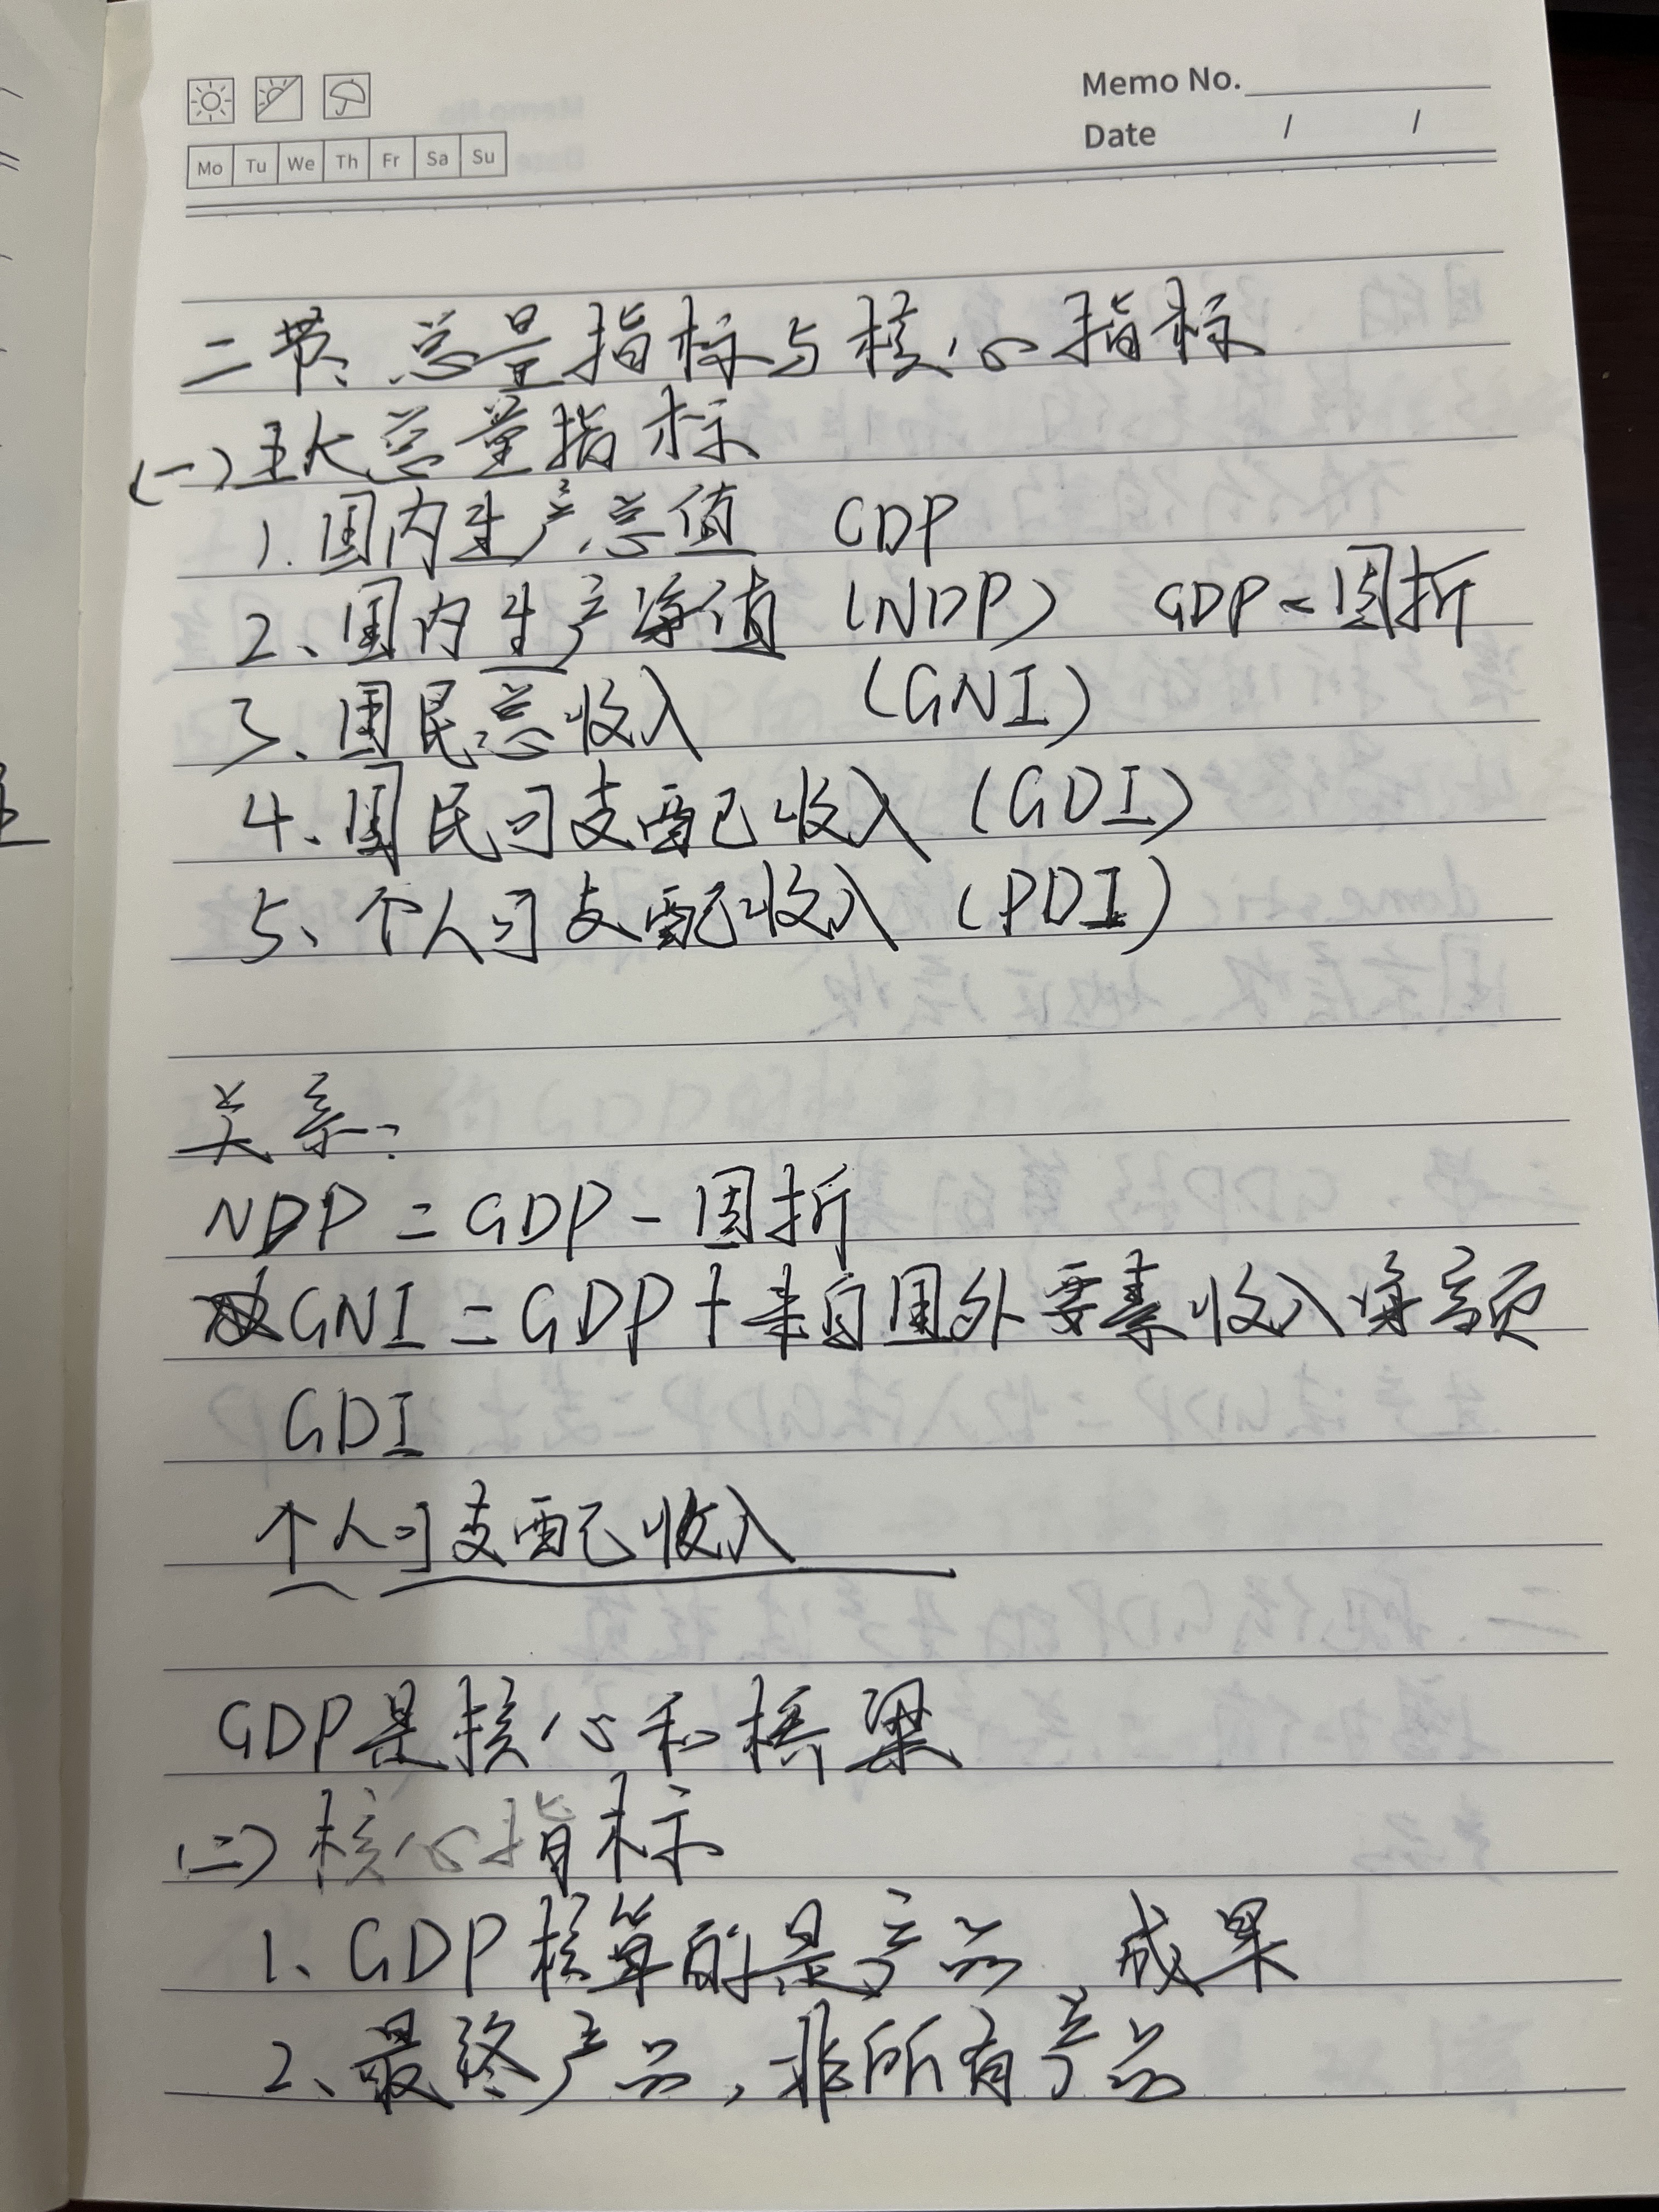 Memo No.
Date / /
Mo Tu We Th Fr Sa Su
二节、总量指标与核心指标
(一)五大总量指标
1.国内生产总值 GDP
2、国内生产净值 (NDP) GDP-固折
3、国民总收入 (GNI)
4、国民可支配收入 (GDI)
5、个人可支配收入 (PDI)
关系:
NDP = GDP - 固折
GNI = GDP + 来自国外要素收入净额
GDI
个人可支配收入
GDP是核心和桥梁
(二)核心指标
1、GDP核算的是产品、成果
2、最终产品,非所有产品